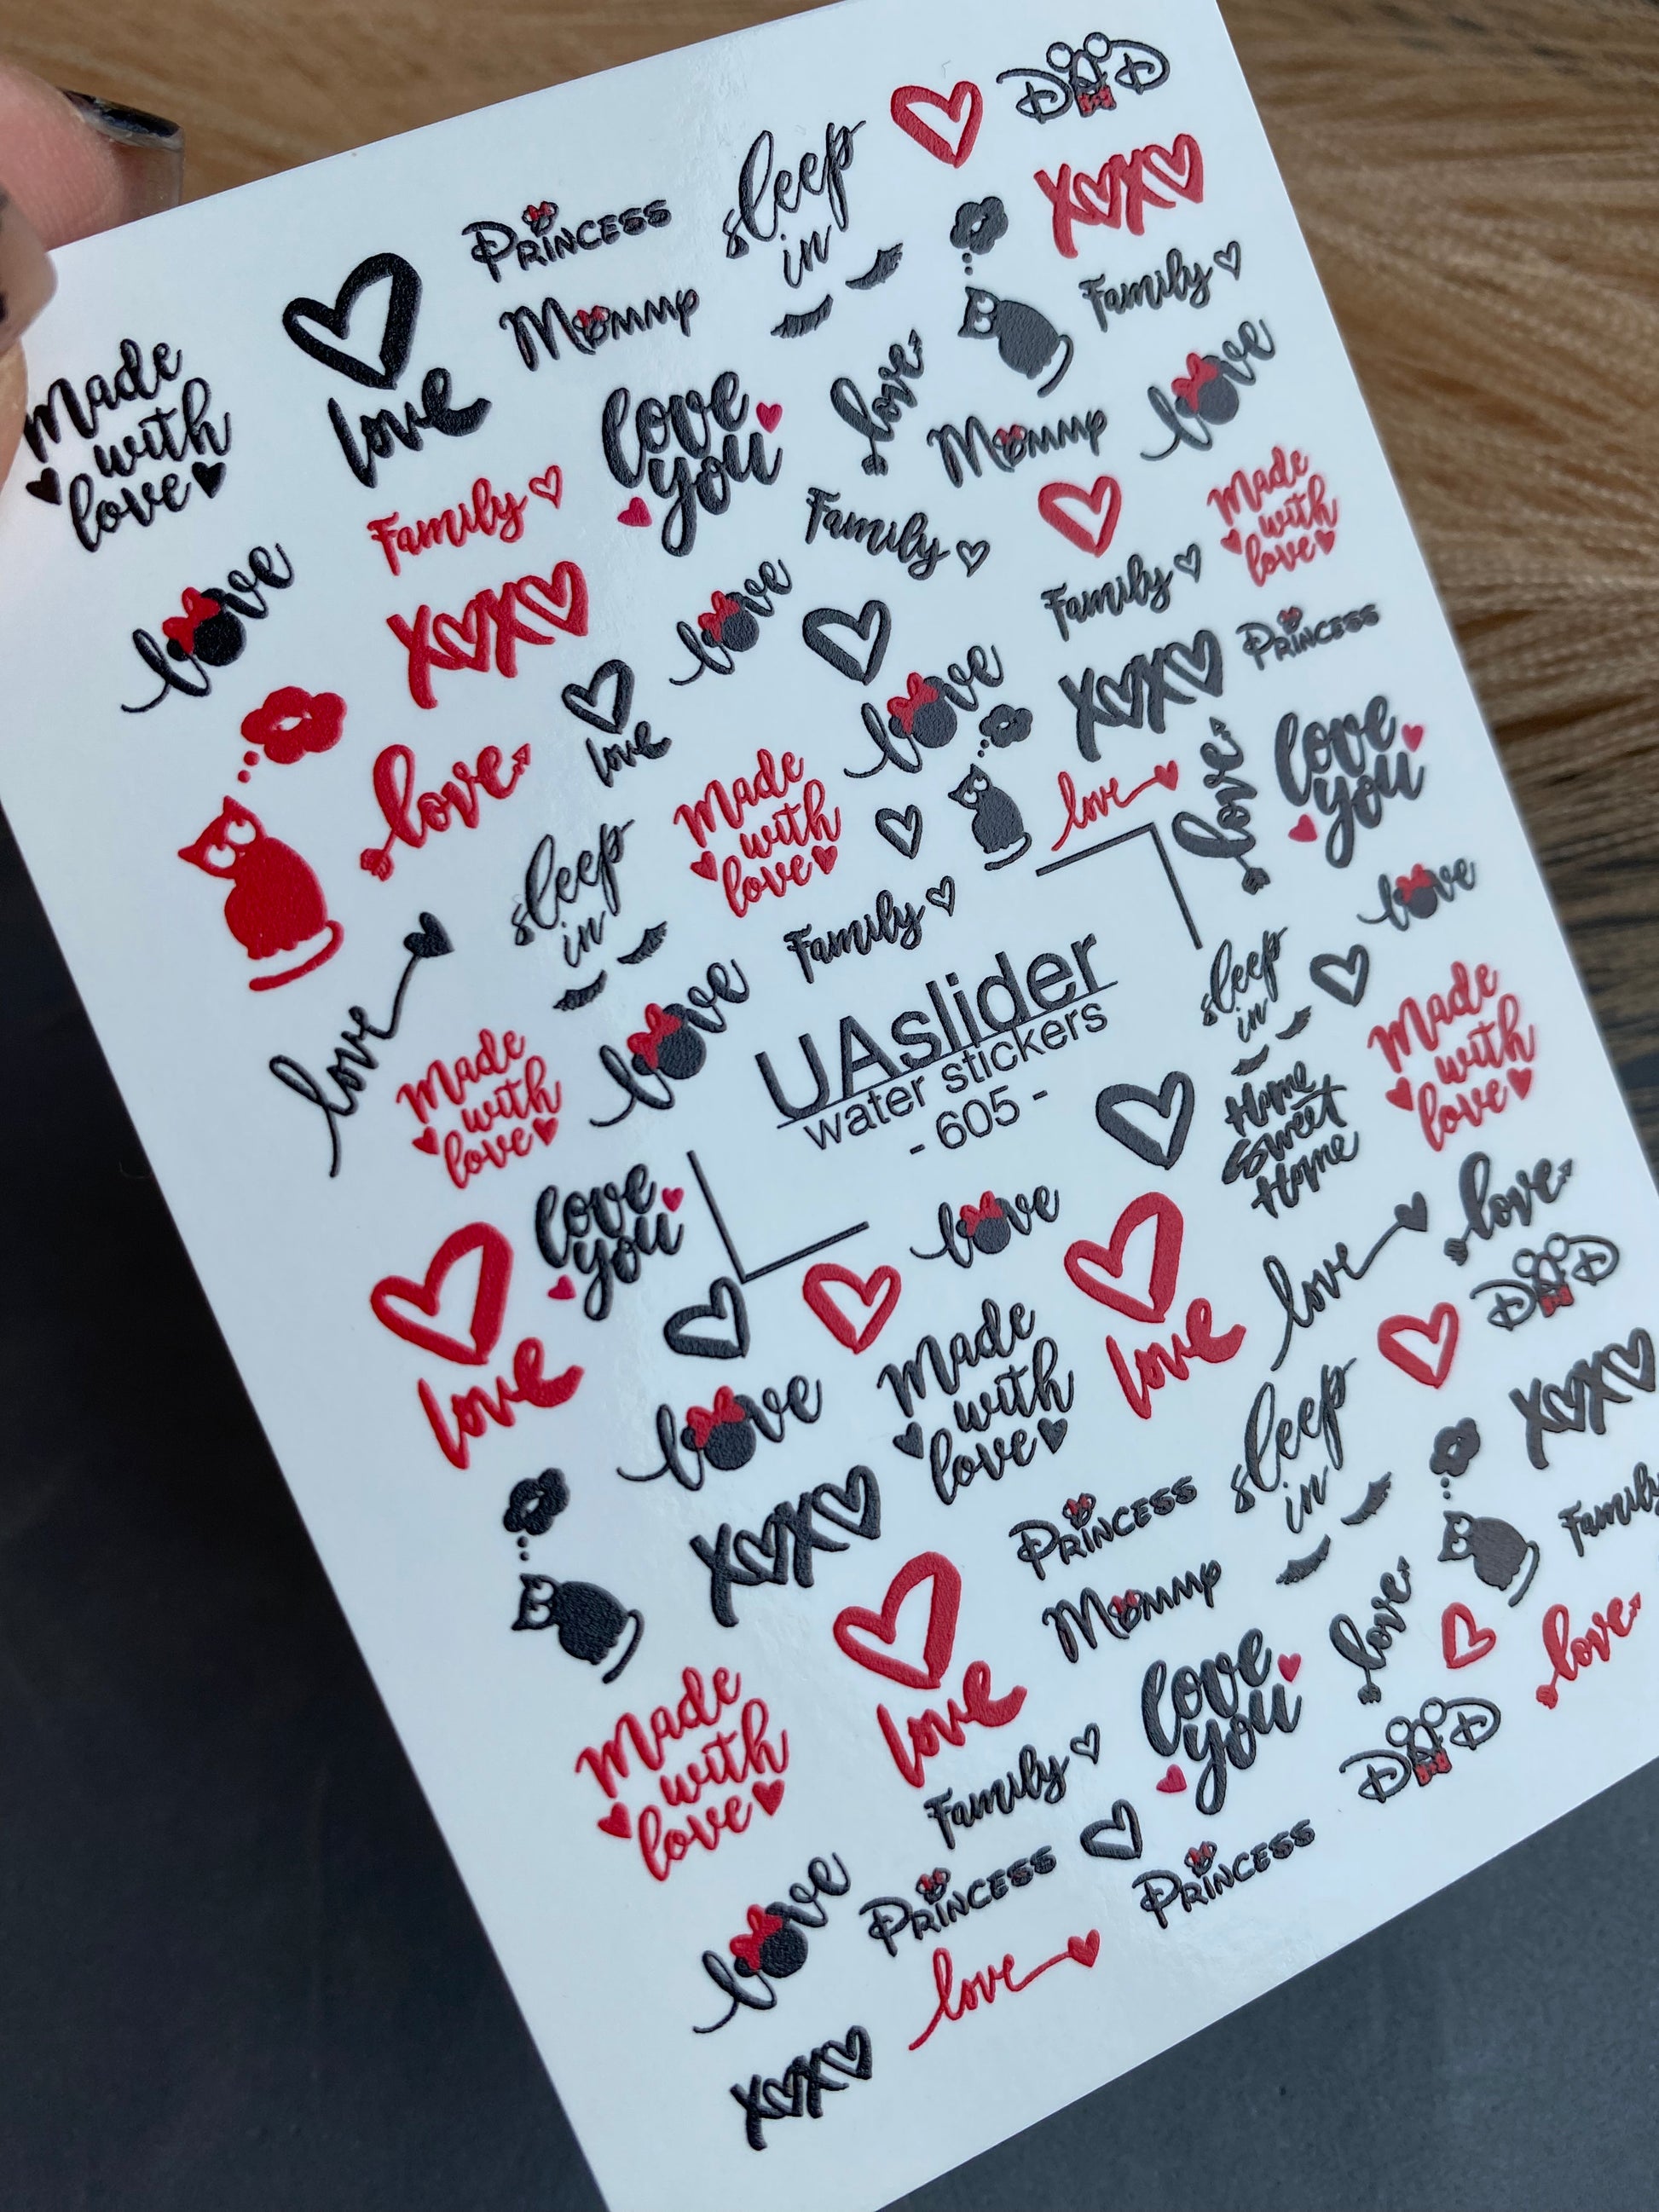 DAD
sleep
in
XOXO
Princess
Mommy
Family
Made
with
love
love
love
you
love
Mommy
love
Family
Family
Made
with
love
love
XOXO
love
Family
Princess
XOXO
love
love
love
Made
with
love
love
love
love
you
sleep
in
Family
love
love
UAslider
water stickers
- 605 -
sleep
in
Made
with
love
Made
with
love
love
Home
Sweet
Home
love
you
love
love
love
DAD
love
love
Made
with
love
love
sleep
in
XOXO
XOXO
Princess
Family
Mommy
love
love
Made
with
love
love
love
you
DAD
Family
Princess
Princess
love
love
XOXO